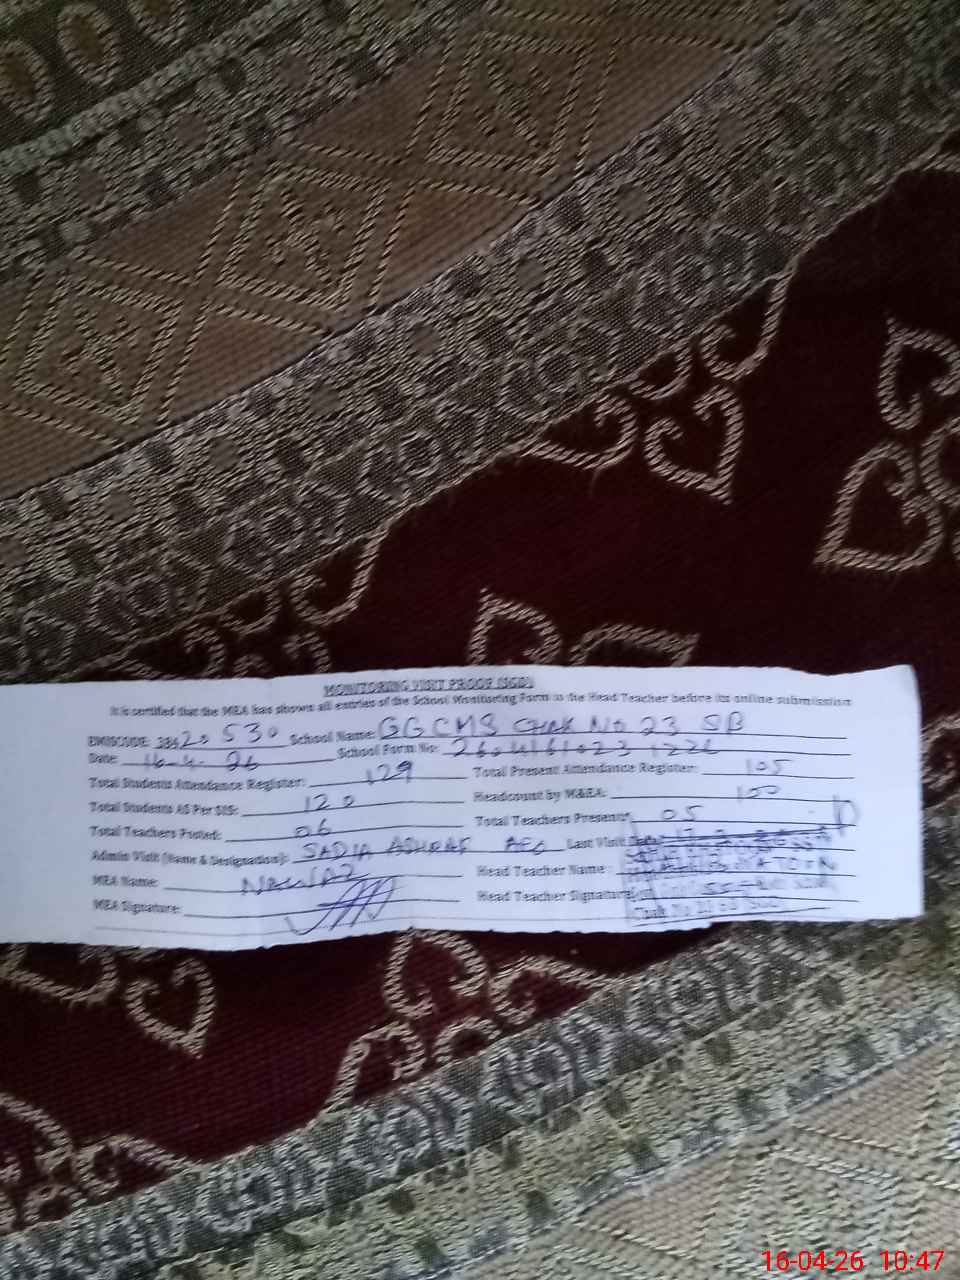 MONITORING VISIT PROOF (SGD)
It is certified that the MEA has shown all entries of the School Monitoring Form to the Head Teacher before its online submission
EMISCODE: 38420530 School Name: GGCMS CHAK No 23 SB
Date: 16-4-26 School Form No:
Total Students Attendance Register: 129 Total Present Attendance Register: 105
Total Students AS Per SIS: 120 Headcount by M&EA: 100
Total Teachers Posted: 06 Total Teachers Present: 05
Admin Visit (Name & Designation): SADIA ASHRAF AEO Last Visit
MEA Name: NAWAZ Head Teacher Name:
MEA Signature: Head Teacher Signature
Chak No
16-04-26 10:47